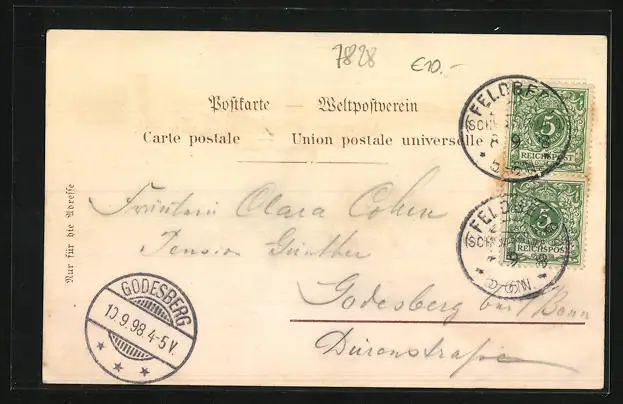 7828 €10.-
Postkarte — Weltpostverein
Carte postale — Union postale universelle
Nur für die Adresse
FELDBERG
(SCHW
8 9 8
5
REICHSPOST
FELDBERG
(SCHW
9 8
5
REICHSPOST
Fräulein Clara Cohen
Pension Günther
Godesberg bei Bonn
Dürenstraße
GODESBERG
10.9.98.4-5V.